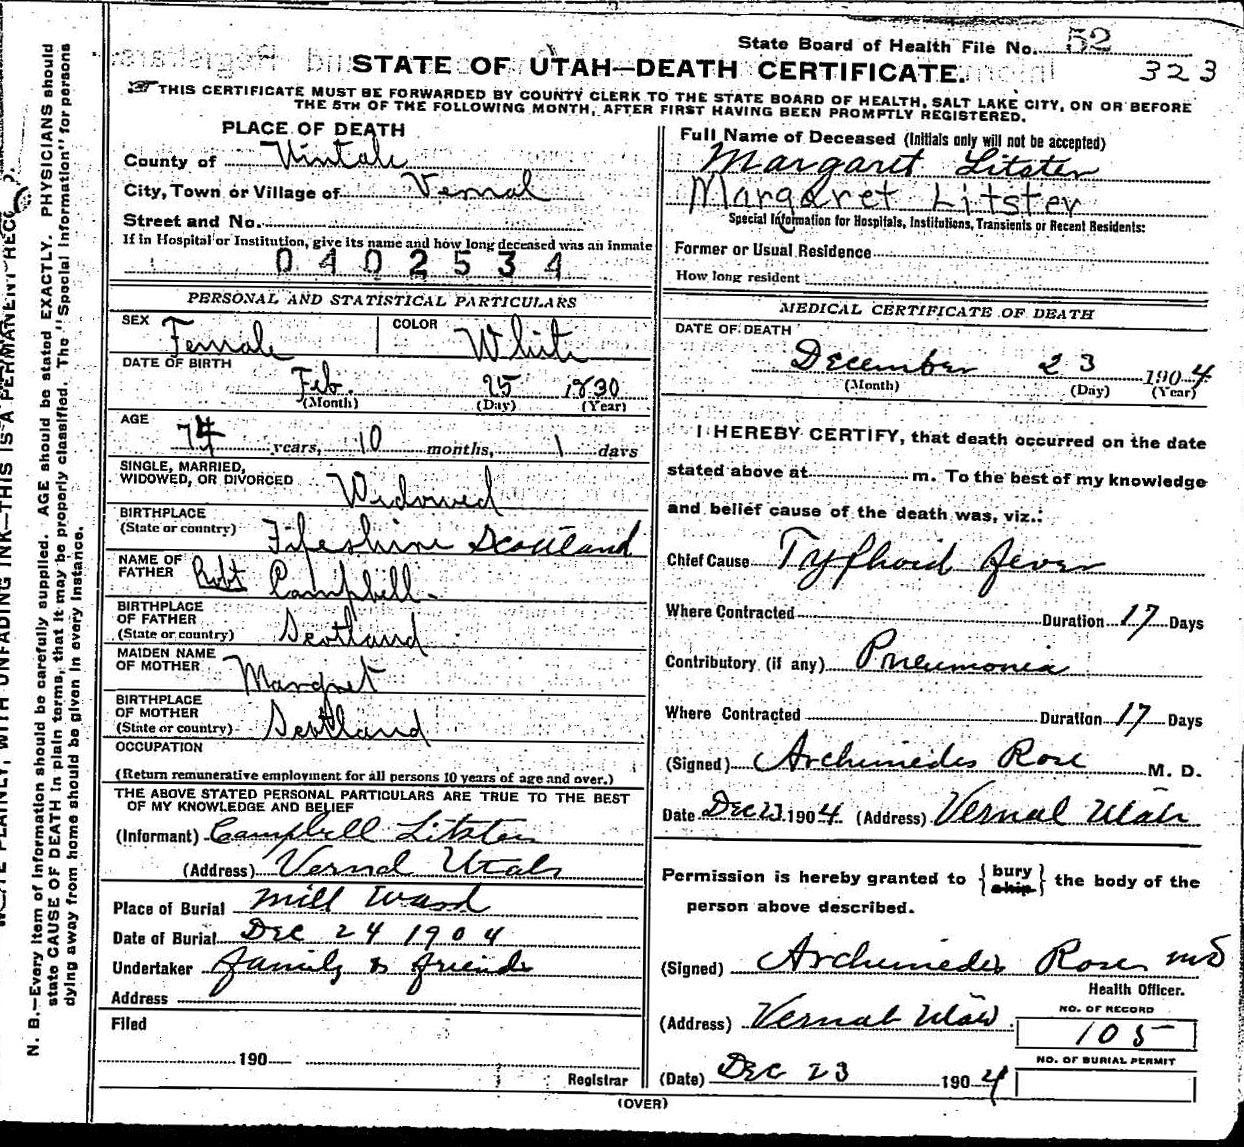 State Board of Health File No. 52
323
STATE OF UTAH—DEATH CERTIFICATE.
THIS CERTIFICATE MUST BE FORWARDED BY COUNTY CLERK TO THE STATE BOARD OF HEALTH, SALT LAKE CITY, ON OR BEFORE
THE 5TH OF THE FOLLOWING MONTH, AFTER FIRST HAVING BEEN PROMPTLY REGISTERED.
PLACE OF DEATH
County of Uintah
City, Town or Village of Vernal
Street and No.
If in Hospital or Institution, give its name and how long deceased was an inmate
0402534
PERSONAL AND STATISTICAL PARTICULARS
SEX Female COLOR White
DATE OF BIRTH
Feb. 25 1830
(Month) (Day) (Year)
AGE
74 years, 10 months, 1 days
SINGLE, MARRIED,
WIDOWED, OR DIVORCED Widowed
BIRTHPLACE
(State or country) Fifeshire Scotland
NAME OF
FATHER Robt Campbell.
BIRTHPLACE
OF FATHER
(State or country) Scotland
MAIDEN NAME
OF MOTHER Margret
BIRTHPLACE
OF MOTHER
(State or country) Scotland
OCCUPATION
(Return remunerative employment for all persons 10 years of age and over.)
THE ABOVE STATED PERSONAL PARTICULARS ARE TRUE TO THE BEST
OF MY KNOWLEDGE AND BELIEF
(Informant) Campbell Litster
(Address) Vernal Utah
Place of Burial Mill Ward
Date of Burial Dec 24 1904
Undertaker family & friends
Address
Filed
190
Registrar
Full Name of Deceased (Initials only will not be accepted)
Margaret Litster
Margaret Litster
Special Information for Hospitals, Institutions, Transients or Recent Residents:
Former or Usual Residence
How long resident
MEDICAL CERTIFICATE OF DEATH
DATE OF DEATH
December 23 1904
(Month) (Day) (Year)
I HEREBY CERTIFY, that death occurred on the date
stated above at m. To the best of my knowledge
and belief cause of the death was, viz.:
Chief Cause Tyfhoid fever
Where Contracted Duration 17 Days
Contributory (if any) Pneumonia
Where Contracted Duration 17 Days
(Signed) Archimedes Rose M. D.
Date Dec 23 1904. (Address) Vernal Utah
Permission is hereby granted to {bury
ship} the body of the
person above described.
(Signed) Archimedes Rose MD
Health Officer.
(Address) Vernal Utah
NO. OF RECORD
105
NO. OF BURIAL PERMIT
(Date) Dec 23 1904
(OVER)
N. B.—Every item of information should be carefully supplied. AGE should be stated EXACTLY. PHYSICIANS should
state CAUSE OF DEATH in plain terms, that it may be properly classified. The "Special Information" for persons
dying away from home should be given in every instance.
PLAINLY, WITH UNFADING INK—THIS IS A PERMANENT